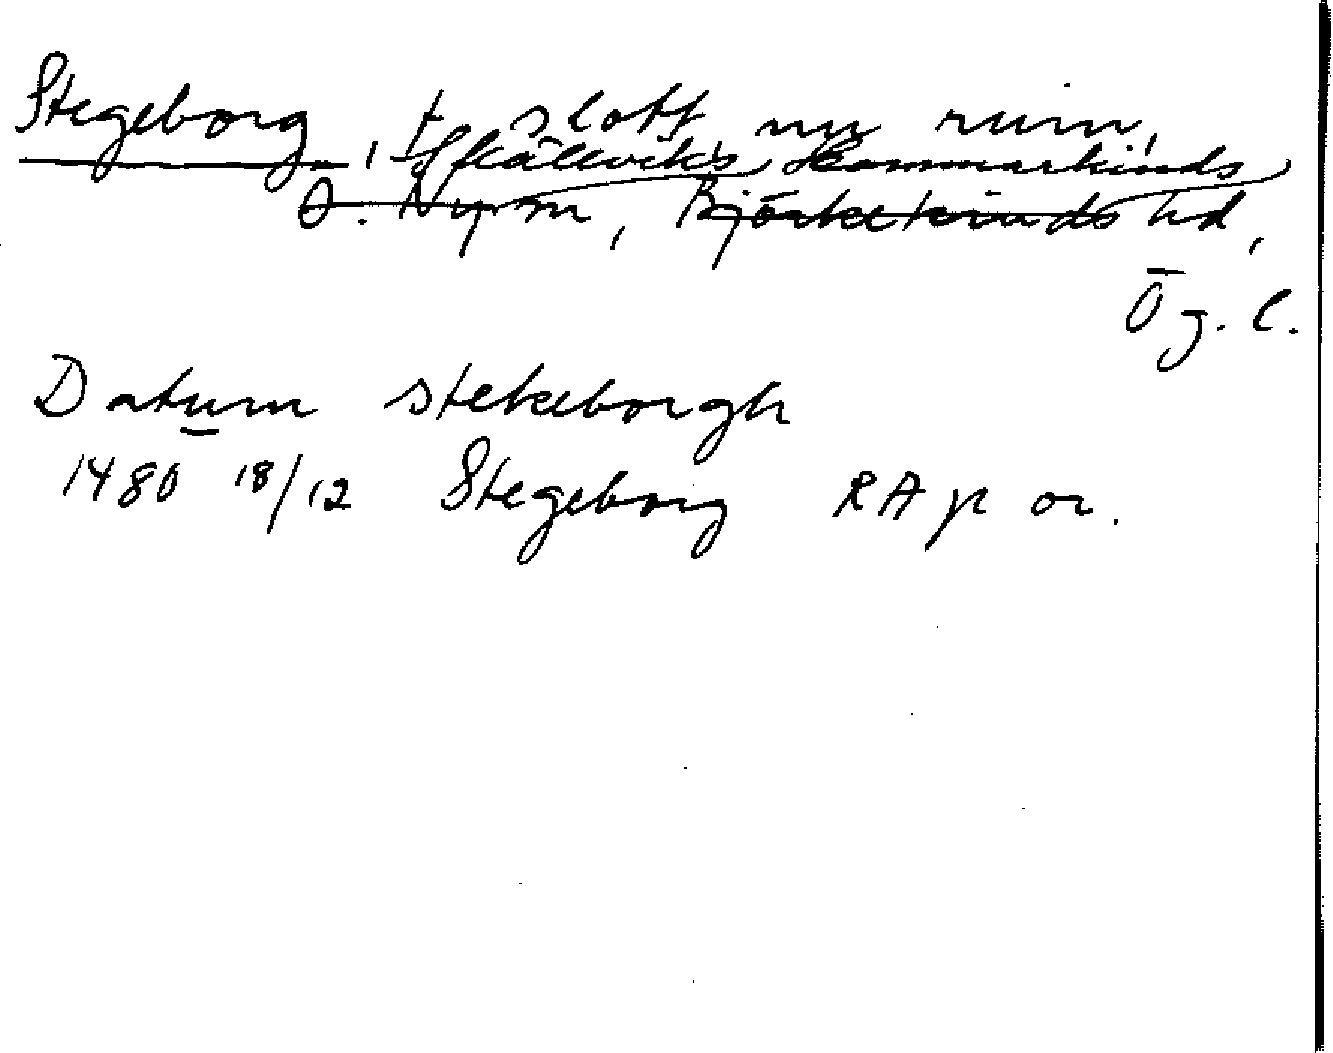 Stegeborg, f. slott, nu ruin,
Skällviks Hammarkinds
Ö. Ny sn, Björkekinds hd,
Ög. l.
Datum stekeborgh
1480 18/12 Stegeborg RA p or.